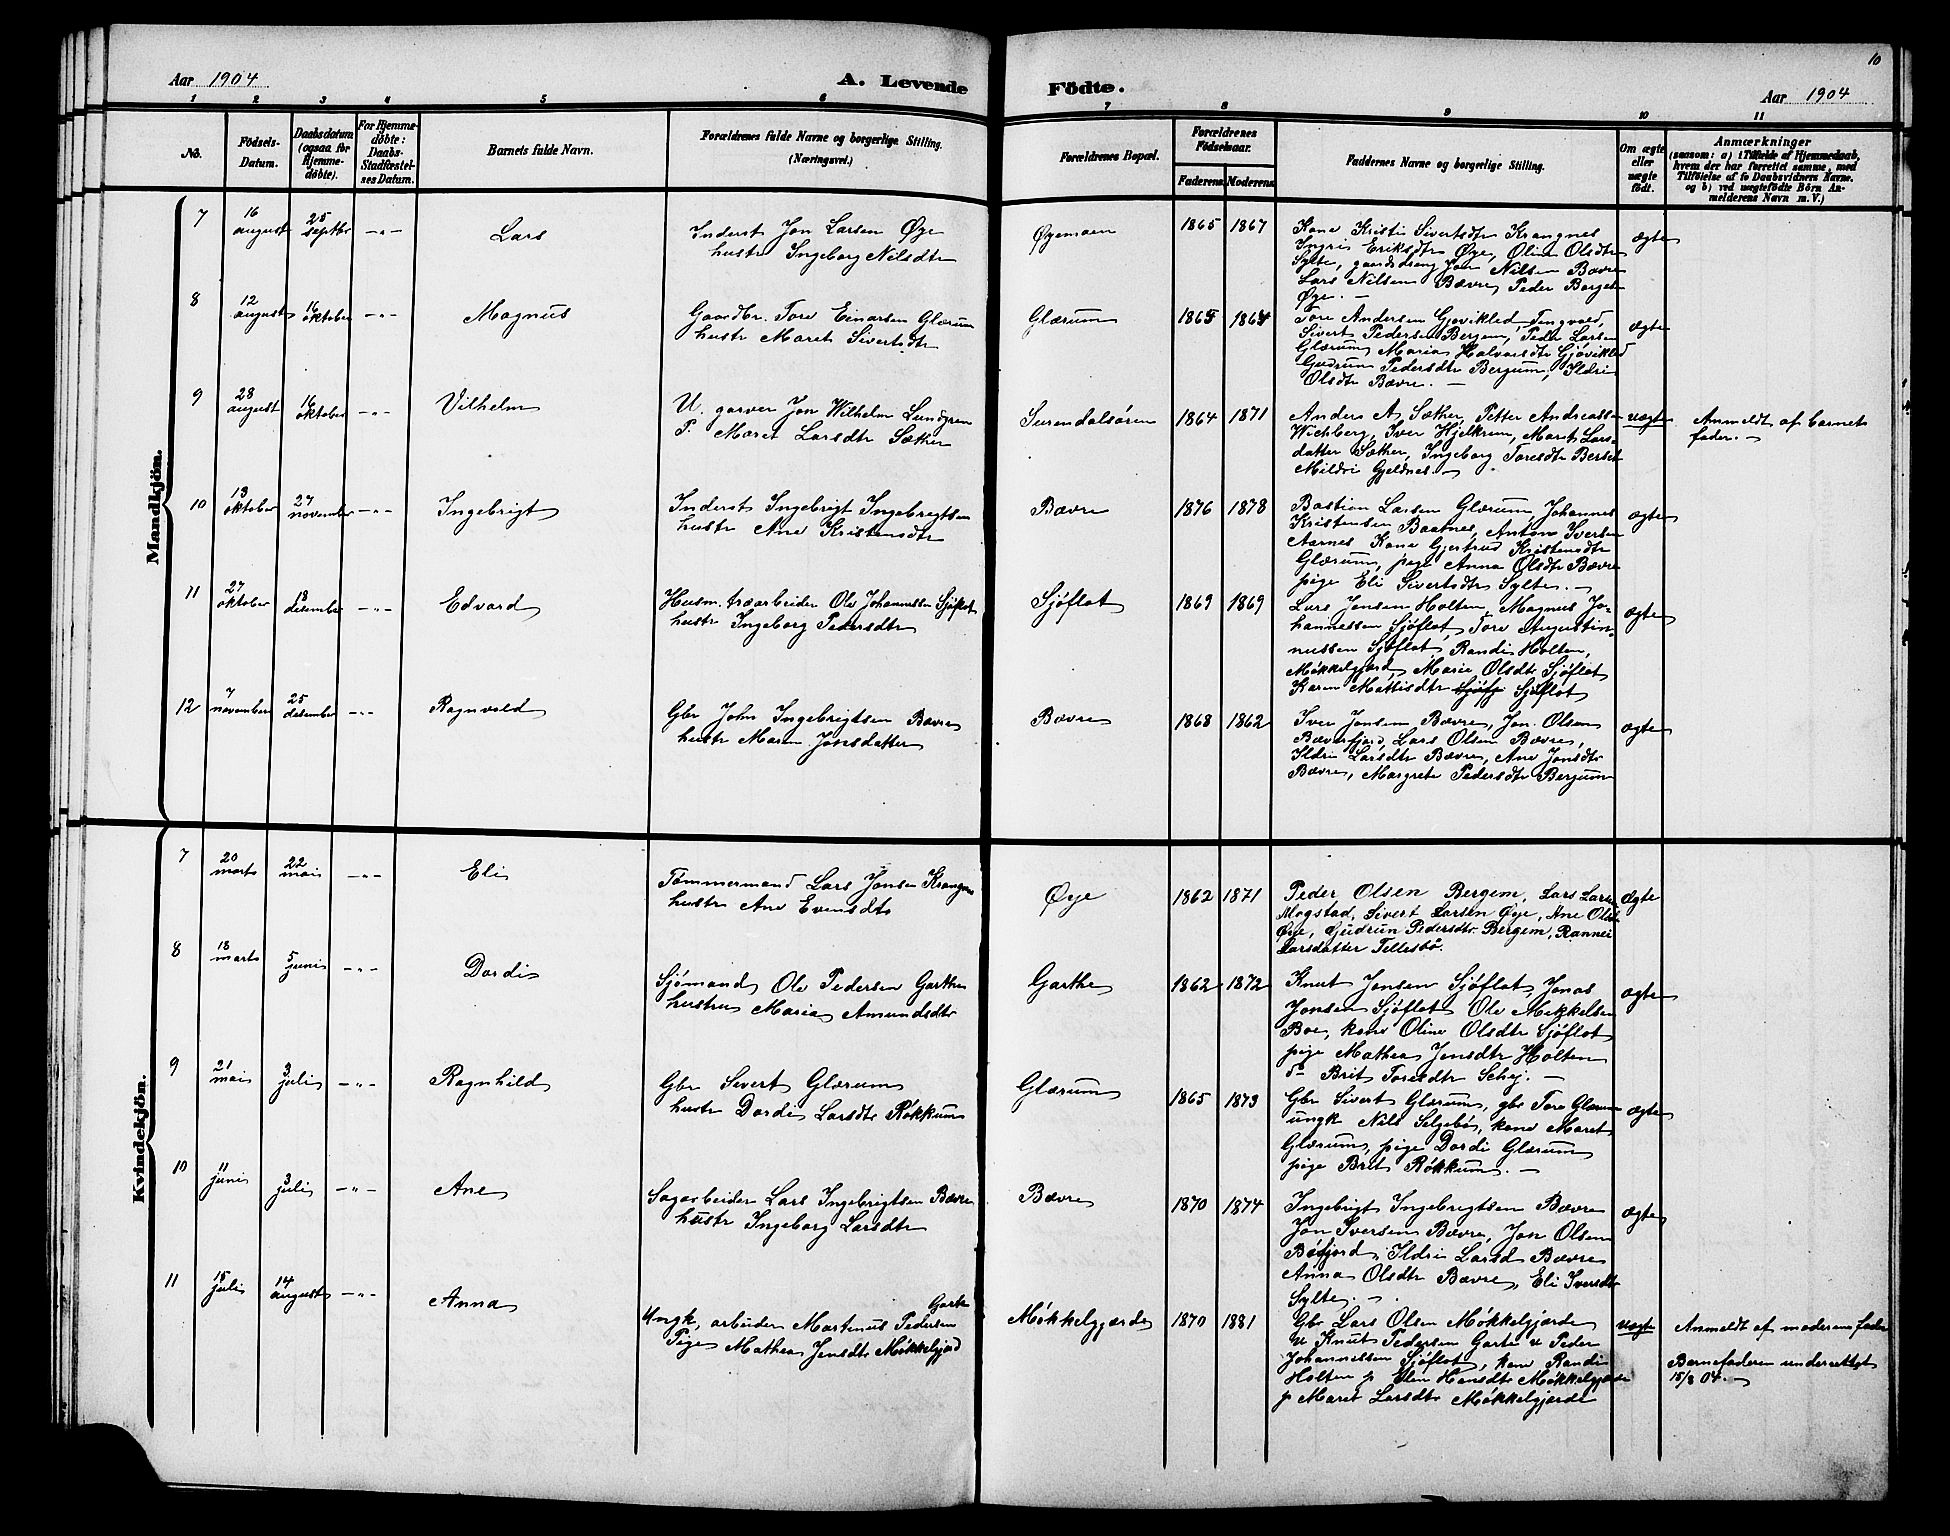 10
Aar 1904
A. Levende Födte.
Aar 1904
1 2 3 4 5 6 7 8 9 10 11
No.
Födsels-
Datum.
Daabsdatum
(ogsaa for
Hjemme-
döbte).
For Hjemme-
döbte:
Daabs-
Stadfæstel-
ses Datum.
Barnets fulde Navn.
Forældrenes fulde Navne og borgerlige Stilling.
(Næringsvei.)
Forældrenes Bopæl.
Forældrenes
Födselsaar.
Faderens. Moderens.
Faddernes Navne og borgerlige Stilling.
Om ægte
eller
uægte
födt.
Anmærkninger
(saasom: a) i Tilfælde af Hjemmedaab,
hvem der har forrettet samme, med
Tilföielse af to Daabsvidners Navne.
og b) ved uægtefödte Börn An-
melderens Navn m. V.)
Mandkjön.
7
16
august
25
septbr
-"-
Lars
Inderst Jon Larsen Øye
hustr Ingeborg Nilsdtr
Øyemoen
1865 1867
Kone Kristi Sivertsdtr Krangnes
Ingri Eriksdtr Øye, Oline Olsdtr
Sylte, gaardsdreng Jon Nilsen Bævre
Lars Nilsen Bævre, Peder Borget
Øye. -
ægte
8
12
august
16
oktober
-"-
Magnus
Gaardbr. Tore Einarsen Glærum
hustr Maret Sivertsdtr
Glærum
1865 1864
Tore Andersen Gjøvikled, Tingvold,
Sivert Pedersen Bergem, Peder Larsen
Glærum, Maria Halvorsdtr Gjøvikled
Gudrun Pedersdtr Bergum, Ildri
Olsdtr Bævre. -
ægte
9
28
august
16
oktober
-"-
Vilhelm
U. garver Jon Wilhelm Lundgren
P. Maret Larsdtr Sæther
Surendalsøren
1864 1871
Anders A. Sæther, Petter Andreassen
Wichberg, Iver Hjelkrem, Marit Lars-
datter Sæther, Ingeborg Toresdtr Berset
Mildri Gjeldnes. -
uægte
Anmeldt af barnets
fader. -
10
13
oktober
27
november
-"-
Ingebrigt
Inderst Ingebrigt Ingebrigtsen
hustr Ane Kristensdtr
Bævre
1876 1878
Bastian Larsen Glærum, Johannes
Kristensen Baatnes, Anton Iversen
Aarnes Kone Gjertrud Kristensdtr
Glærum, pige Anna Olsdtr Bævre
pige Eli Sivertsdtr Sylte. -
ægte
11
27
oktober
18
desember
-"-
Edvard
Husm. træarbeider Ole Johannessen Sjøflot
hustr Ingeborg Pedersdtr
Sjøflot
1869 1869
Lars Jensen Holten, Magnus Jo-
hannessen Sjøflot, Tore Augustin-
nussen Sjøflot, Randi Holten,
Møkkelgjerd, Marie Olsdtr Sjøflot
Karen Mattisdtr Sjøflot
ægte
12
7
november
25
desember
-"-
Ragnvald
Gbr John Ingebrigtsen Bævre
hustr Maren Jonsdatter
Bævre
1868 1862
Iver Jonsen Bævre, Jon Olsen
Bæverfjord, Lars Olsen Bævre,
Ildri Larsdtr Bævre, Ane Jonsdtr
Bævre, Margrete Pedersdtr Bergum
ægte
Kvindekjön.
7
20
marts
22
mai
-"-
Eli
Tømmermand Lars Jonsen Krangnes
hustr Ane Evensdtr
Øye
1862 1871
Peder Olsen Bergem, Lars Larsen
Mogstad, Sivert Larsen Øye, Ane Olsdtr
Øye, Gjudrun Pedersdtr. Bergem, Rannei
Larsdatter Tellesbö.
Ægte
8
18
marts
5
juni
-"-
Dordi
Sjømand Ole Pedersen Garthe
hustru Maria Amundsdtr
Garthe
1862 1872
Knut Jonsen Sjøflot, Jonas
Jonsen Sjøflot Ole Mikkelsen
Boe, kone Oline Olsdtr Sjøflot
pige Mathea Jensdtr Holten
do Brit Toresdtr Schej. -
ægte
9
21
mai
3
juli
-"-
Ragnhild
Gbr Sivert Glærum
hustr Dordi Larsdtr Røkkum
Glærum
1865 1873
Gbr Sivert Glærum, gbr Tore Glærum
ungk Nils Selgebø, kone Maret
Glærum, pige Dordi Glærum
pige Brit Røkkum. -
ægte
10
11
juni
3
juli
-"-
Ane
Sagarbeider Lars Ingebrigtsen Bævre
hustr Ingeborg Larsdtr
Bævre
1870 1874
Ingebrigt Ingebrigtsen Bævre
Jon Iversen Bævre, Jon Olsen
Bøfjord, Ildri Larsd Bævre
Anna Olsdtr Bævre, Eli Iversdtr
Sylte. -
ægte
11
15
juli
14
august
-"-
Anna
Garte
Ungk, arbeider Martinus Pedersen
Pige Mathea Jensdtr Møkkelgjerd
Møkkelgjærde
1870 1881
Gbr Lars Olsen Møkkelgjærde
u Knut Pedersen Garte u Peder
Johannessen Sjøflot, kone Randi
Holten p Elen Hansdtr Møkkelgjærde
p Maret Larsdtr Møkkelgjærde
uægte
Anmeldt af moderens fader
Barnefaderen underrettet
15/8 04. -